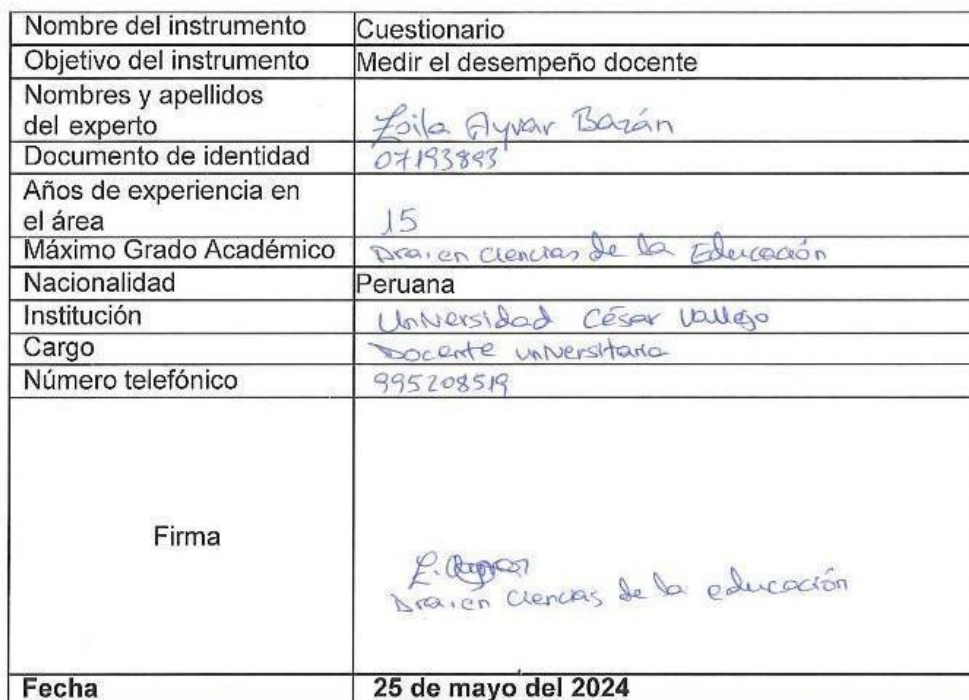 Nombre del instrumento Cuestionario
Objetivo del instrumento Medir el desempeño docente
Nombres y apellidos
del experto Zoila Ayvar Bazán
Documento de identidad 07193893
Años de experiencia en
el área 15
Máximo Grado Académico Dra. en ciencias de la Educación
Nacionalidad Peruana
Institución Universidad César Vallejo
Cargo Docente universitaria
Número telefónico 995208519
Firma
Dra. en ciencias de la educación
Fecha 25 de mayo del 2024